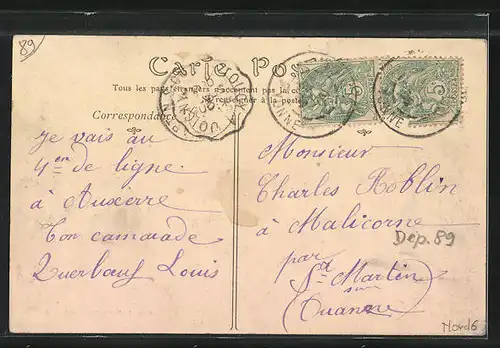 89
Carte Po
Tous les pays étrangers n'acceptent pas la co
renseigner à la poste
Correspondance
Je vais au
4en de ligne
à Auxerre
Ton camarade
Querbœuf Louis
Monsieur
Charles Roblin
à Malicorne
par
St Martin
sur
(Ouanne)
Dép. 89
5
5
ENNE
Nord6